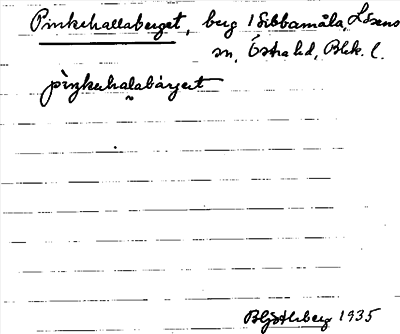 Pinkehallaberget, berg i Sibbamåla, Lösens
sn, Östra hd, Blek. l.
pìŋkehalabàrjet
1935